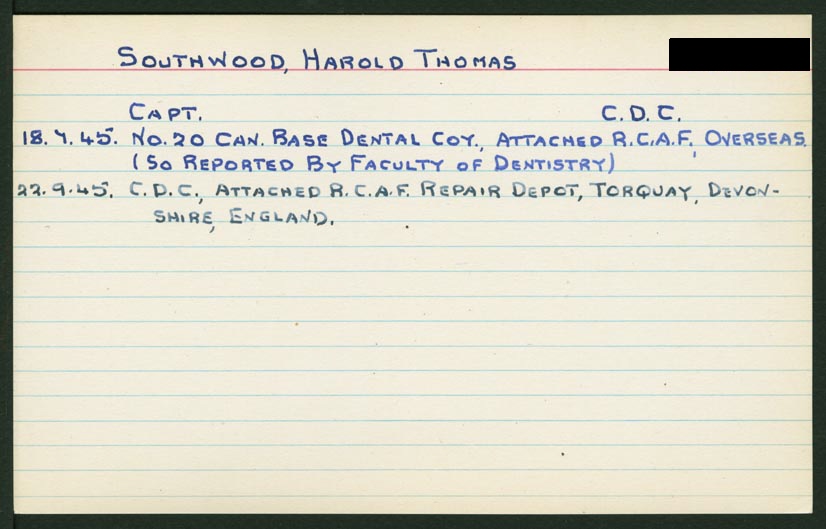 SOUTHWOOD, HAROLD THOMAS
CAPT. C.D.C.
18.7.45. NO.20 CAN. BASE DENTAL COY., ATTACHED R.C.A.F., OVERSEAS.
(SO REPORTED BY FACULTY OF DENTISTRY)
22.9.45. C.D.C., ATTACHED R.C.A.F. REPAIR DEPOT, TORQUAY, DEVON-
SHIRE, ENGLAND.